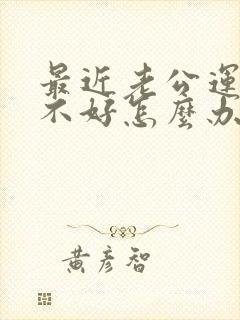 最近老公運
不好怎麼办
黃彥智